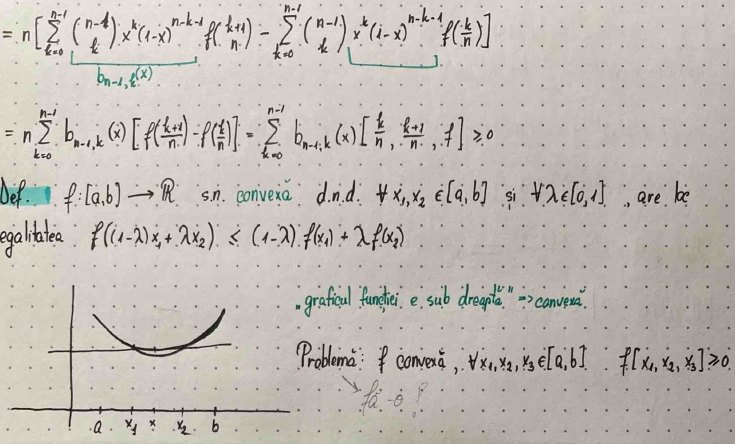 = n [ \sum_{k=0}^{n-1} \binom{n-1}{k} x^k (1-x)^{n-k-1} f(\frac{k+1}{n}) - \sum_{k=0}^{n-1} \binom{n-1}{k} x^k (1-x)^{n-k-1} f(\frac{k}{n}) ]
b_{n-1,k}(x)
= n \sum_{k=0}^{n-1} b_{n-1,k}(x) [ f(\frac{k+1}{n}) - f(\frac{k}{n}) ] = \sum_{k=0}^{n-1} b_{n-1,k}(x) [ \frac{k}{n}, \frac{k+1}{n}, f ] ≥ 0
Def. f: [a,b] → ℝ s.n. convexă d.n.d. ∀ x₁,x₂ ∈ [a,b] și ∀ λ ∈ [0,1], are loc
egalitatea f((1-λ)x₁ + λx₂) ≤ (1-λ) f(x₁) + λ f(x₂)
"graficul funcției e sub dreaptă" => convexă.
Problemă: f convexă, ∀ x₁,x₂,x₃ ∈ [a,b] f[x₁,x₂,x₃] ≥ 0
fă-o !
a x₁ x x₂ b